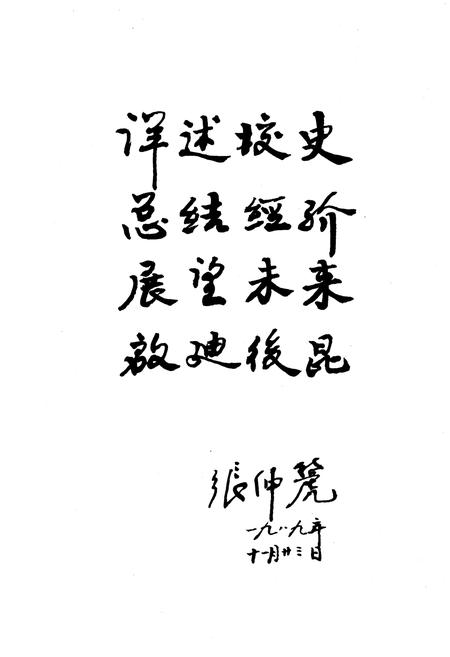 详述校史
总结經验
展望未来
啟迪後昆
張仲箎
一九八九年
十一月廿三日